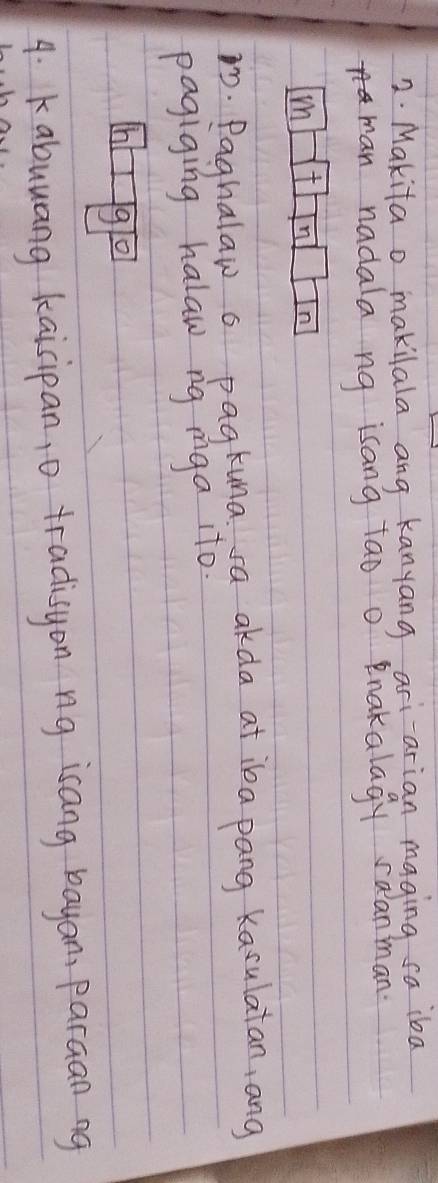 2. Makita o makilala ang kanyang ari-arian maging sa iba
man nadala ng isang tao o inakalagay saan man.
m t n n
3. Paghalaw o pagkuna sa akda at iba pang kasulatan, ang
pagiging halaw ng mga ito.
h g o
4. Kabuuang kaisipan, o tradisyon ng isang bayan, paraan ng